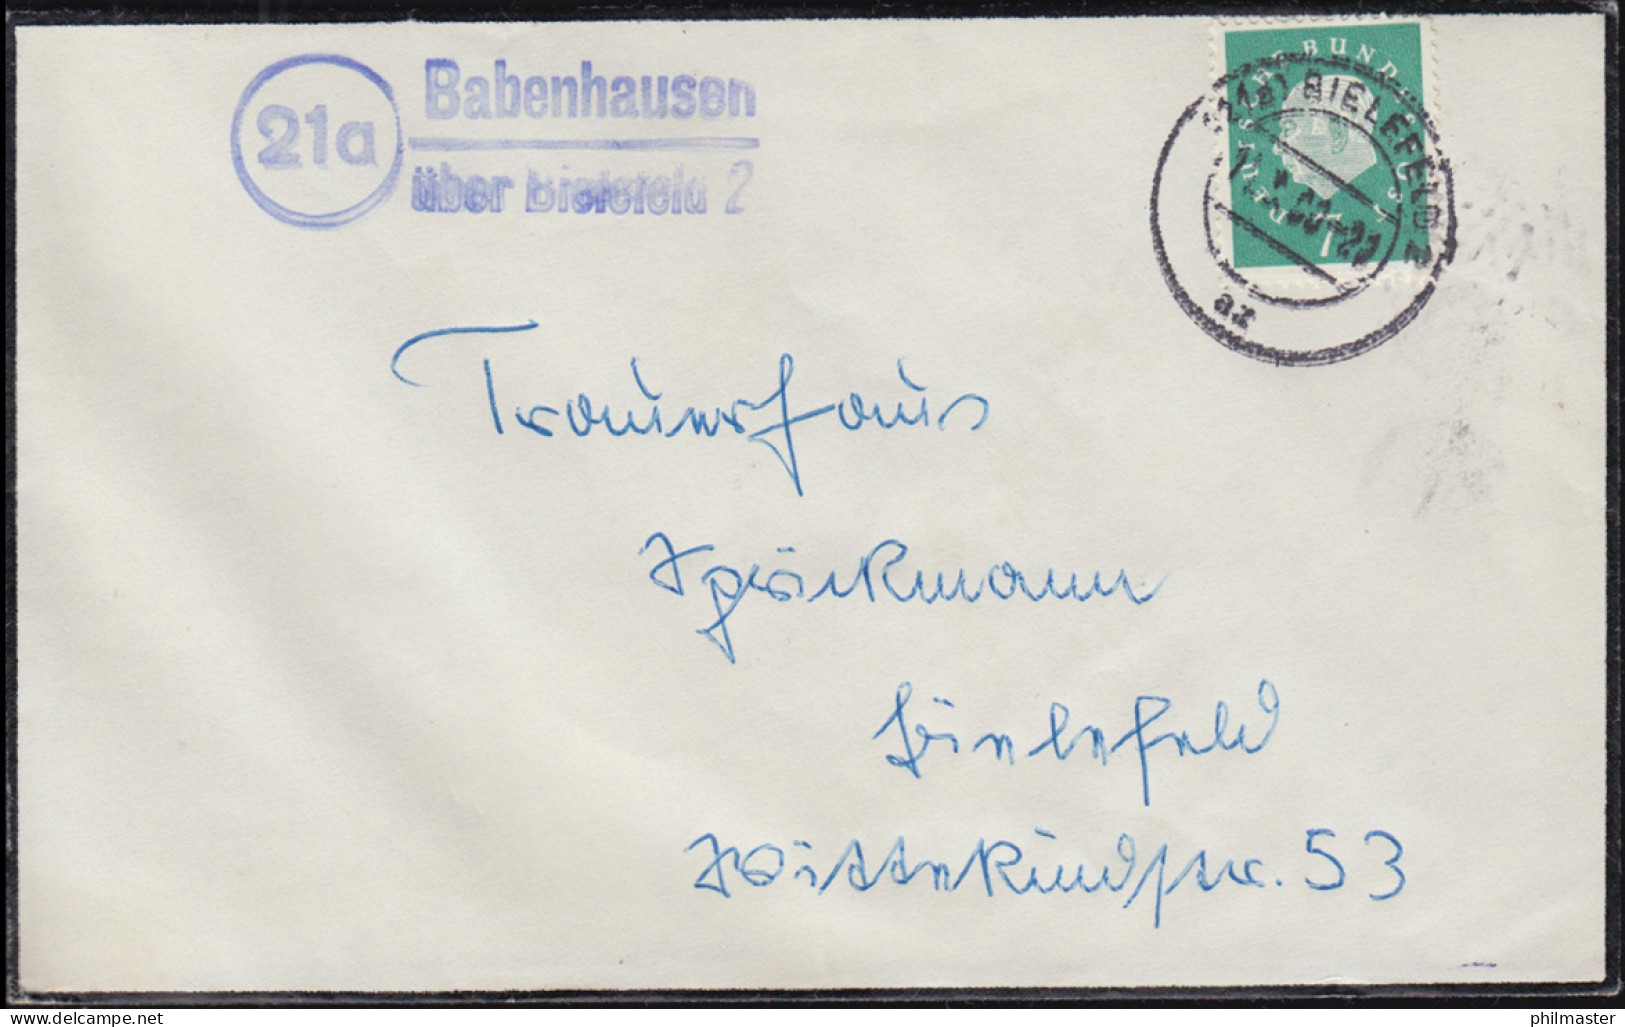 21a
Babenhausen
über Bielefeld 2
DEUTSCHE BUNDESPOST
7
(21a) BIELEFELD 2
az
Trauerhaus
Spröckmann
Bielefeld
Wittekindstr. 53
philmaster